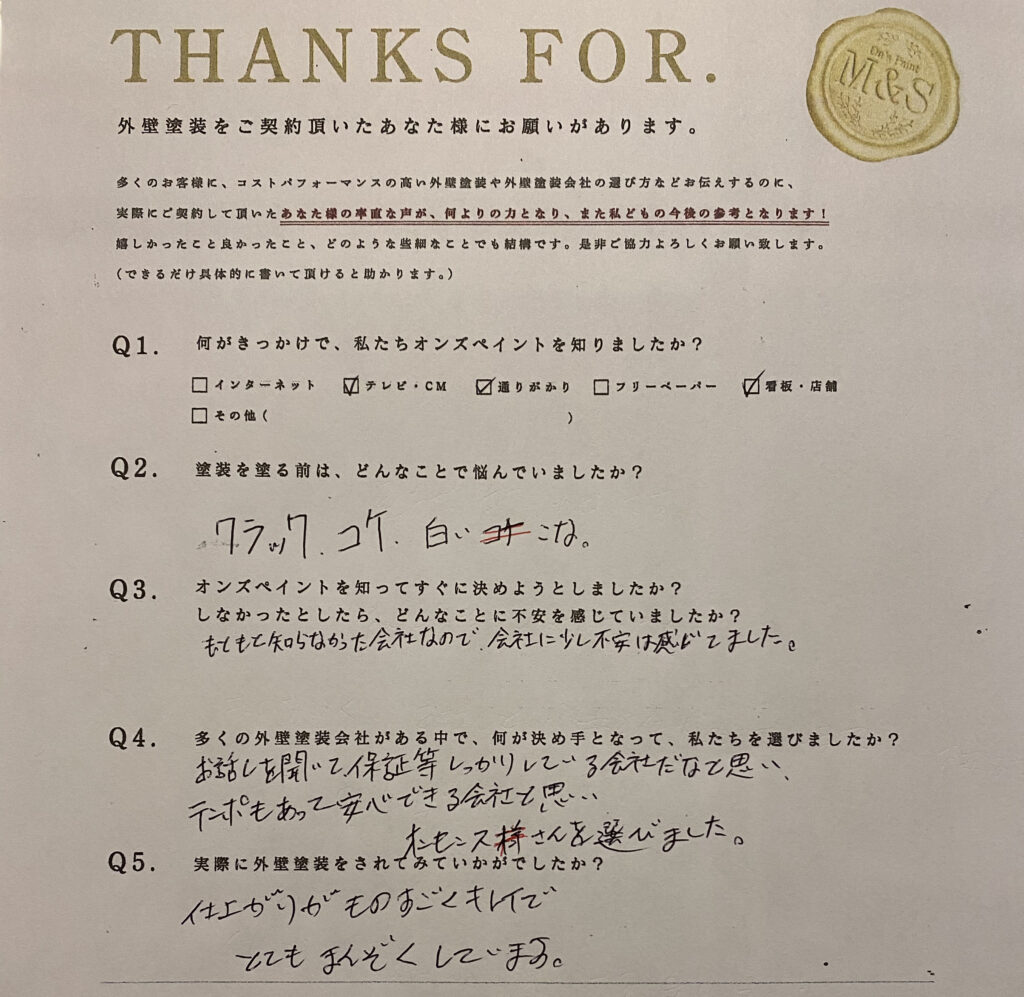 THANKS FOR.
On's Paint
M&S
外壁塗装をご契約頂いたあなた様にお願いがあります。
多くのお客様に、コストパフォーマンスの高い外壁塗装や外壁塗装会社の選び方などお伝えするのに、
実際にご契約して頂いたあなた様の率直な声が、何よりの力となり、また私どもの今後の参考となります！
嬉しかったこと良かったこと、どのような些細なことでも結構です。是非ご協力よろしくお願い致します。
（できるだけ具体的に書いて頂けると助かります。）
Q1. 何がきっかけで、私たちオンズペイントを知りましたか？
□インターネット ☑テレビ・CM ☑通りがかり □フリーペーパー ☑看板・店舗
□その他（ ）
Q2. 塗装を塗る前は、どんなことで悩んでいましたか？
クラック、コケ、白い コケ こな。
Q3. オンズペイントを知ってすぐに決めようとしましたか？
しなかったとしたら、どんなことに不安を感じていましたか？
もともと知らなかった会社なので、会社に少し不安は感じてました。
Q4. 多くの外壁塗装会社がある中で、何が決め手となって、私たちを選びましたか？
お話しを聞いて、保証等しっかりしている会社だなと思い、
テンポもあって安心できる会社と思い
オンセンス様さんを選びました。
Q5. 実際に外壁塗装をされてみていかがでしたか？
仕上がりがものすごくキレイで
とてもまんぞくしています。